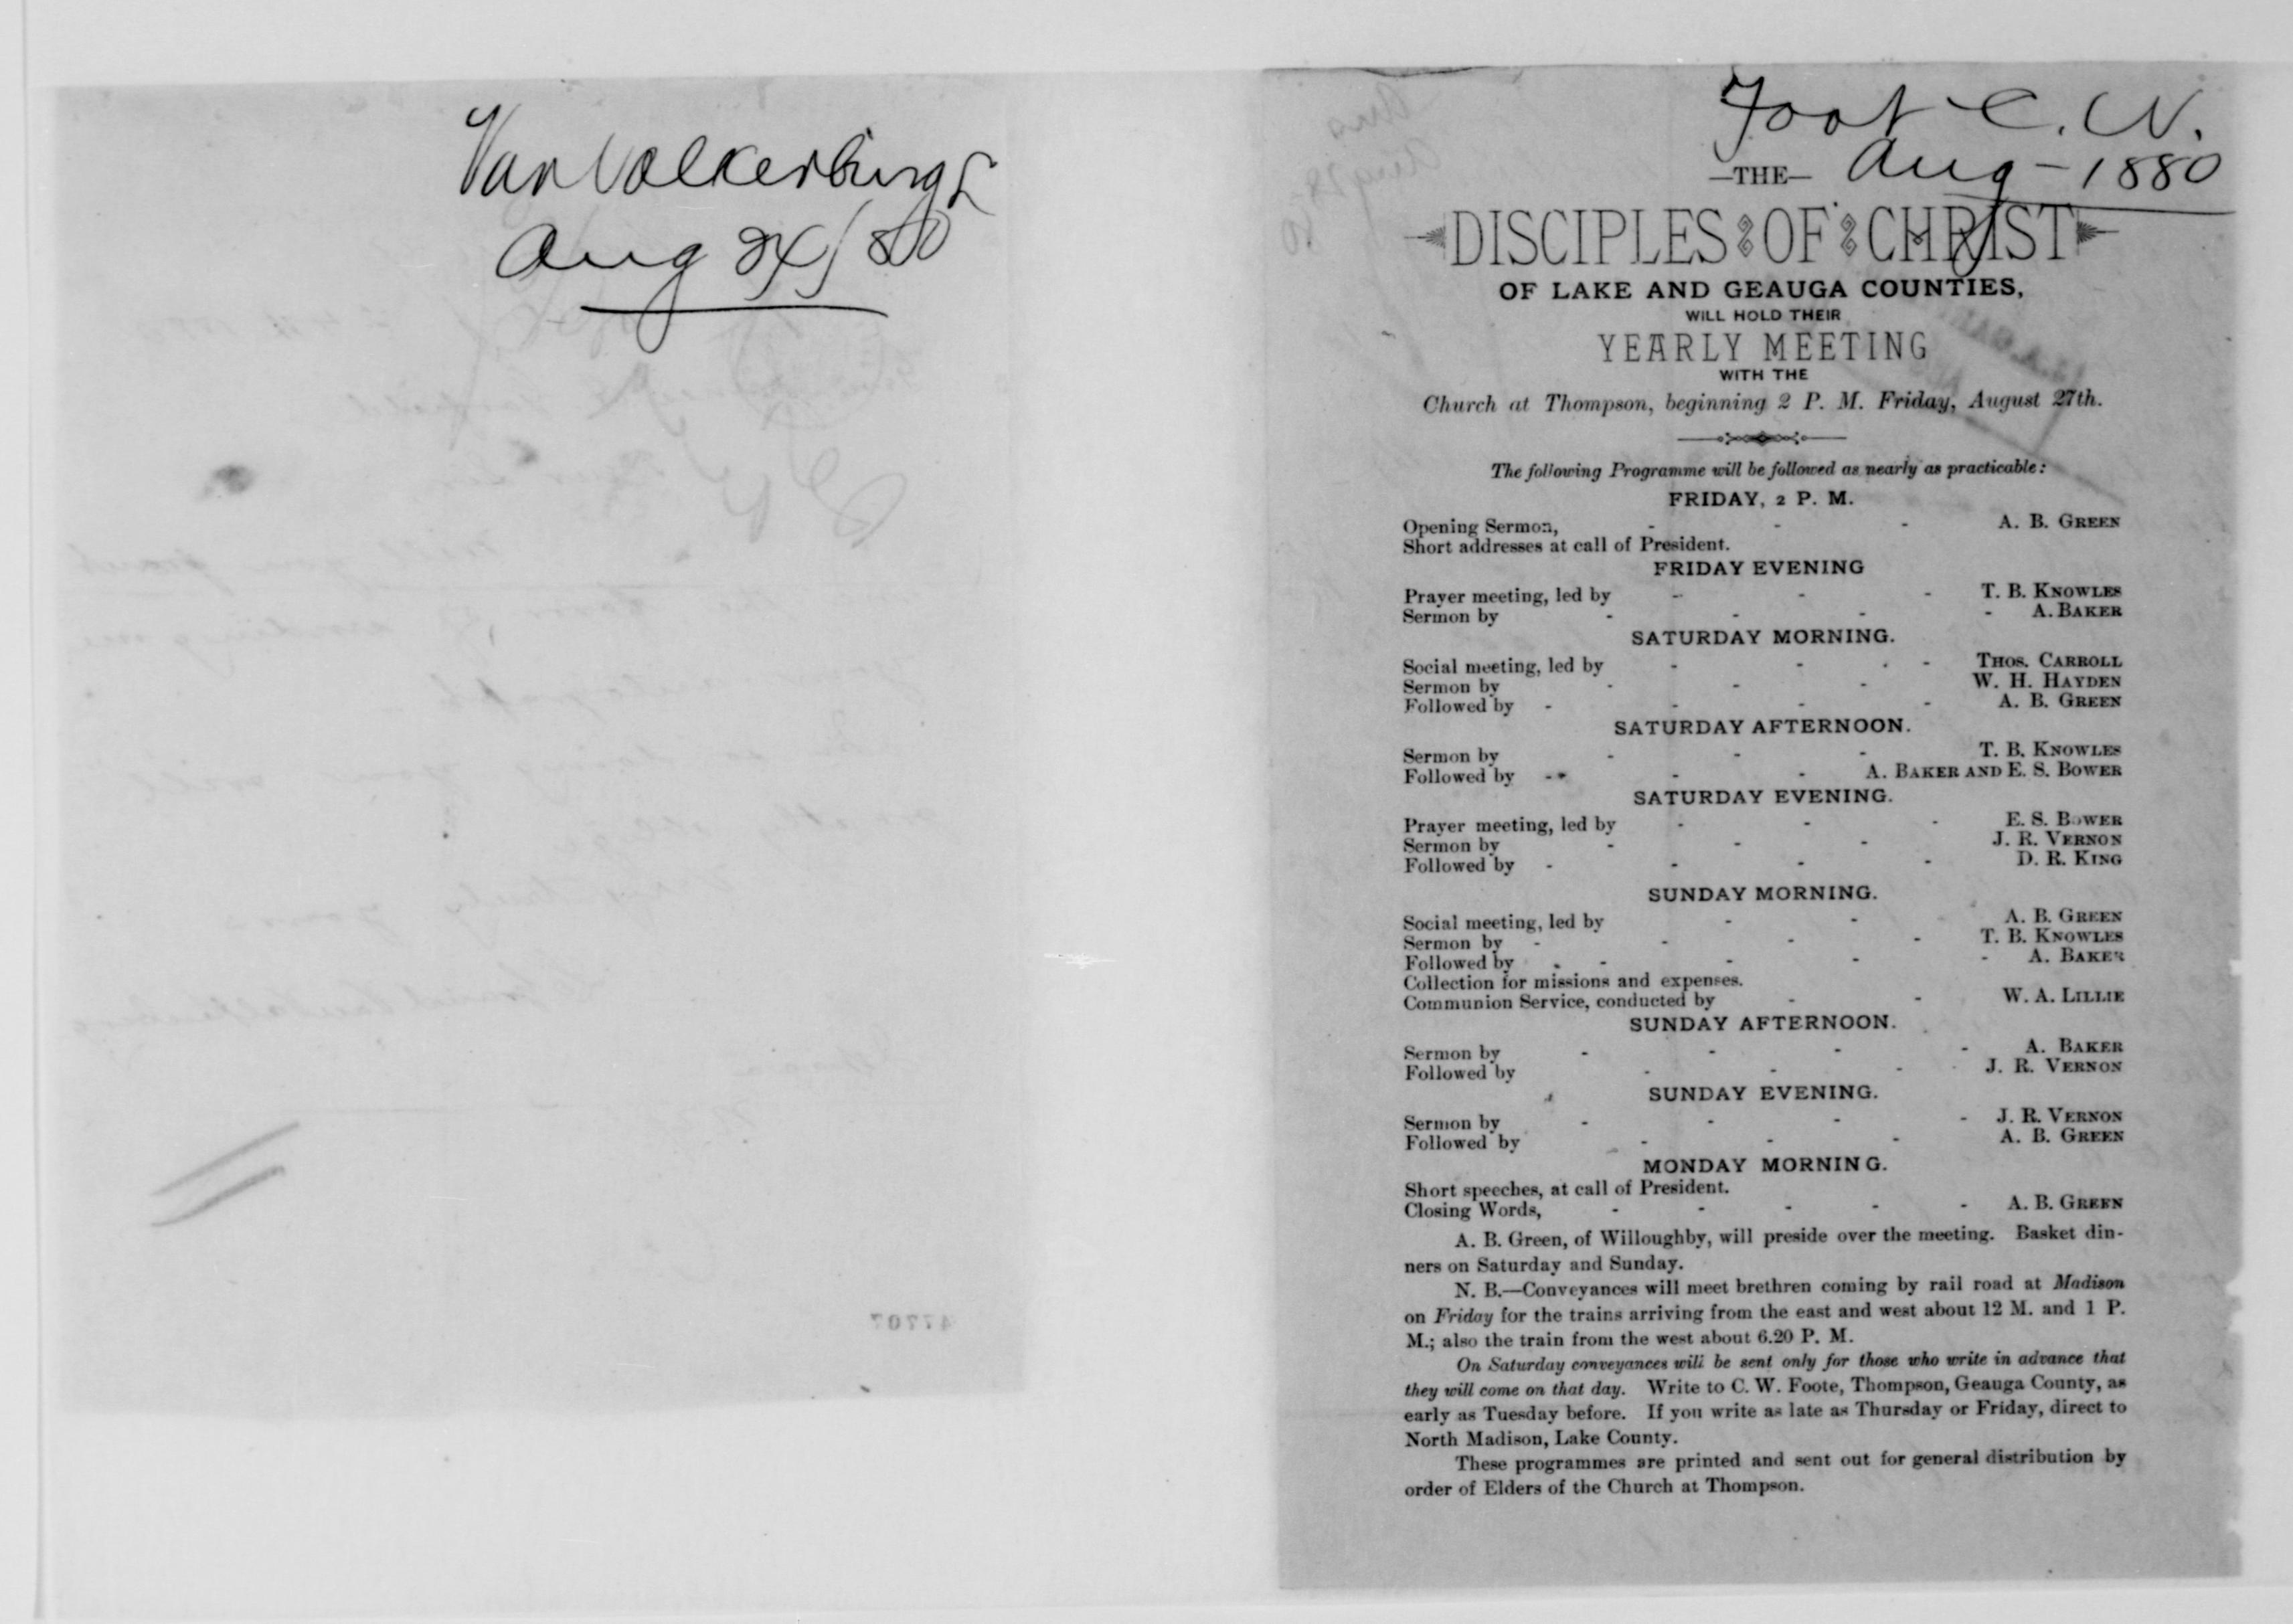 Van Valkenburgh
Aug 24/80
Foot C. W.
Aug - 1880
—THE—
DISCIPLES OF CHRIST
OF LAKE AND GEAUGA COUNTIES,
WILL HOLD THEIR
YEARLY MEETING
WITH THE
Church at Thompson, beginning 2 P. M. Friday, August 27th.
The following Programme will be followed as nearly as practicable:
FRIDAY, 2 P. M.
Opening Sermon, - - - A. B. GREEN
Short addresses at call of President.
FRIDAY EVENING
Prayer meeting, led by - - - T. B. KNOWLES
Sermon by - - - - A. BAKER
SATURDAY MORNING.
Social meeting, led by - - - THOS. CARROLL
Sermon by - - - W. H. HAYDEN
Followed by - - - - A. B. GREEN
SATURDAY AFTERNOON.
Sermon by - - - T. B. KNOWLES
Followed by - - - A. BAKER AND E. S. BOWER
SATURDAY EVENING.
Prayer meeting, led by - - - E. S. BOWER
Sermon by - - - J. R. VERNON
Followed by - - - - D. R. KING
SUNDAY MORNING.
Social meeting, led by - - A. B. GREEN
Sermon by - - - - T. B. KNOWLES
Followed by - - - - A. BAKER
Collection for missions and expenses.
Communion Service, conducted by - - W. A. LILLIE
SUNDAY AFTERNOON.
Sermon by - - - - A. BAKER
Followed by - - - J. R. VERNON
SUNDAY EVENING.
Sermon by - - - - J. R. VERNON
Followed by - - - A. B. GREEN
MONDAY MORNING.
Short speeches, at call of President.
Closing Words, - - - - - A. B. GREEN
A. B. Green, of Willoughby, will preside over the meeting. Basket din-
ners on Saturday and Sunday.
N. B.—Conveyances will meet brethren coming by rail road at Madison
on Friday for the trains arriving from the east and west about 12 M. and 1 P.
M.; also the train from the west about 6.20 P. M.
On Saturday conveyances will be sent only for those who write in advance that
they will come on that day. Write to C. W. Foote, Thompson, Geauga County, as
early as Tuesday before. If you write as late as Thursday or Friday, direct to
North Madison, Lake County.
These programmes are printed and sent out for general distribution by
order of Elders of the Church at Thompson.
47707